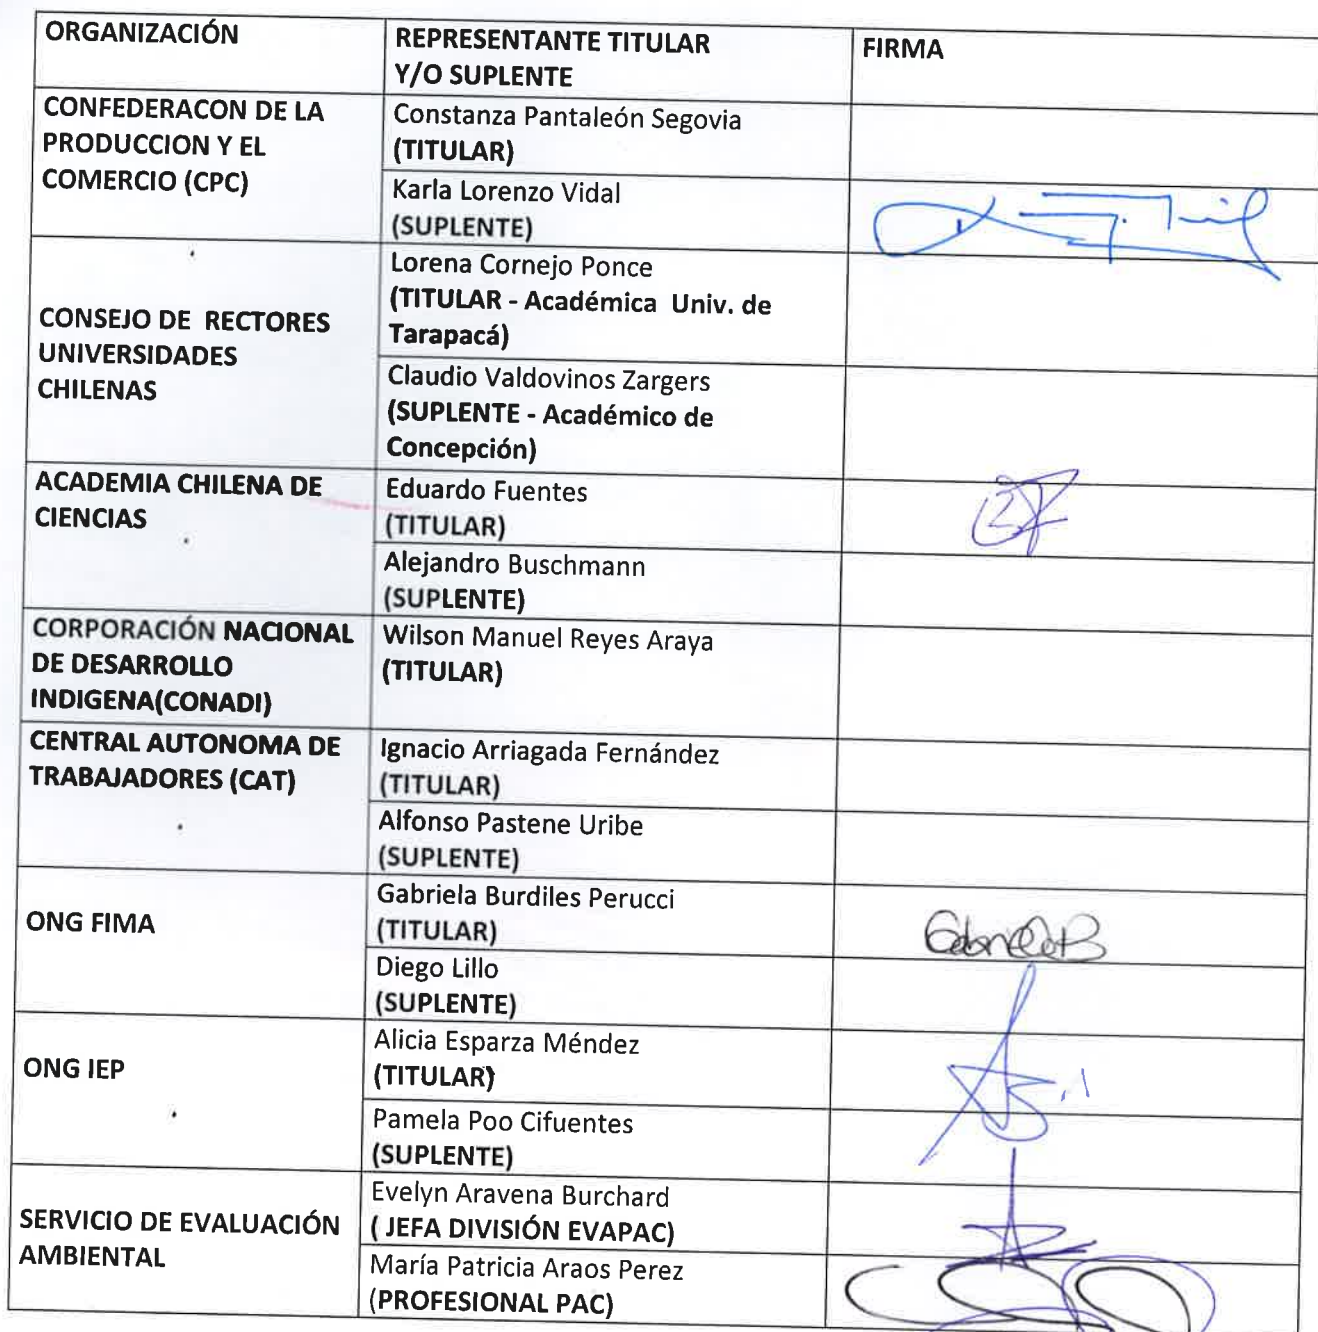 ORGANIZACIÓN
REPRESENTANTE TITULAR
Y/O SUPLENTE
FIRMA
CONFEDERACON DE LA
PRODUCCION Y EL
COMERCIO (CPC)
Constanza Pantaleón Segovia
(TITULAR)
Karla Lorenzo Vidal
(SUPLENTE)
CONSEJO DE RECTORES
UNIVERSIDADES
CHILENAS
Lorena Cornejo Ponce
(TITULAR - Académica Univ. de
Tarapacá)
Claudio Valdovinos Zargers
(SUPLENTE - Académico de
Concepción)
ACADEMIA CHILENA DE
CIENCIAS
Eduardo Fuentes
(TITULAR)
Alejandro Buschmann
(SUPLENTE)
CORPORACIÓN NACIONAL
DE DESARROLLO
INDIGENA(CONADI)
Wilson Manuel Reyes Araya
(TITULAR)
CENTRAL AUTONOMA DE
TRABAJADORES (CAT)
Ignacio Arriagada Fernández
(TITULAR)
Alfonso Pastene Uribe
(SUPLENTE)
ONG FIMA
Gabriela Burdiles Perucci
(TITULAR)
GabrielaB
Diego Lillo
(SUPLENTE)
ONG IEP
Alicia Esparza Méndez
(TITULAR)
Pamela Poo Cifuentes
(SUPLENTE)
SERVICIO DE EVALUACIÓN
AMBIENTAL
Evelyn Aravena Burchard
( JEFA DIVISIÓN EVAPAC)
María Patricia Araos Perez
(PROFESIONAL PAC)